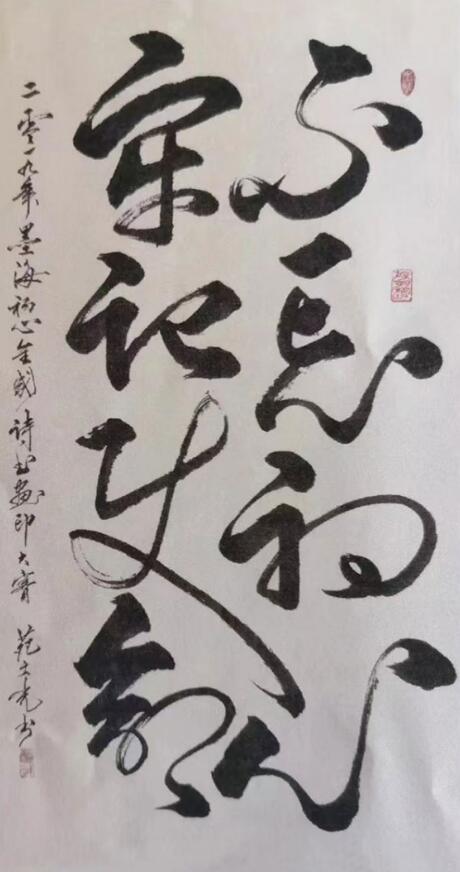 不忘初心
牢记使命
二零一九年墨海初心全国诗书画印大赛 范文亮书